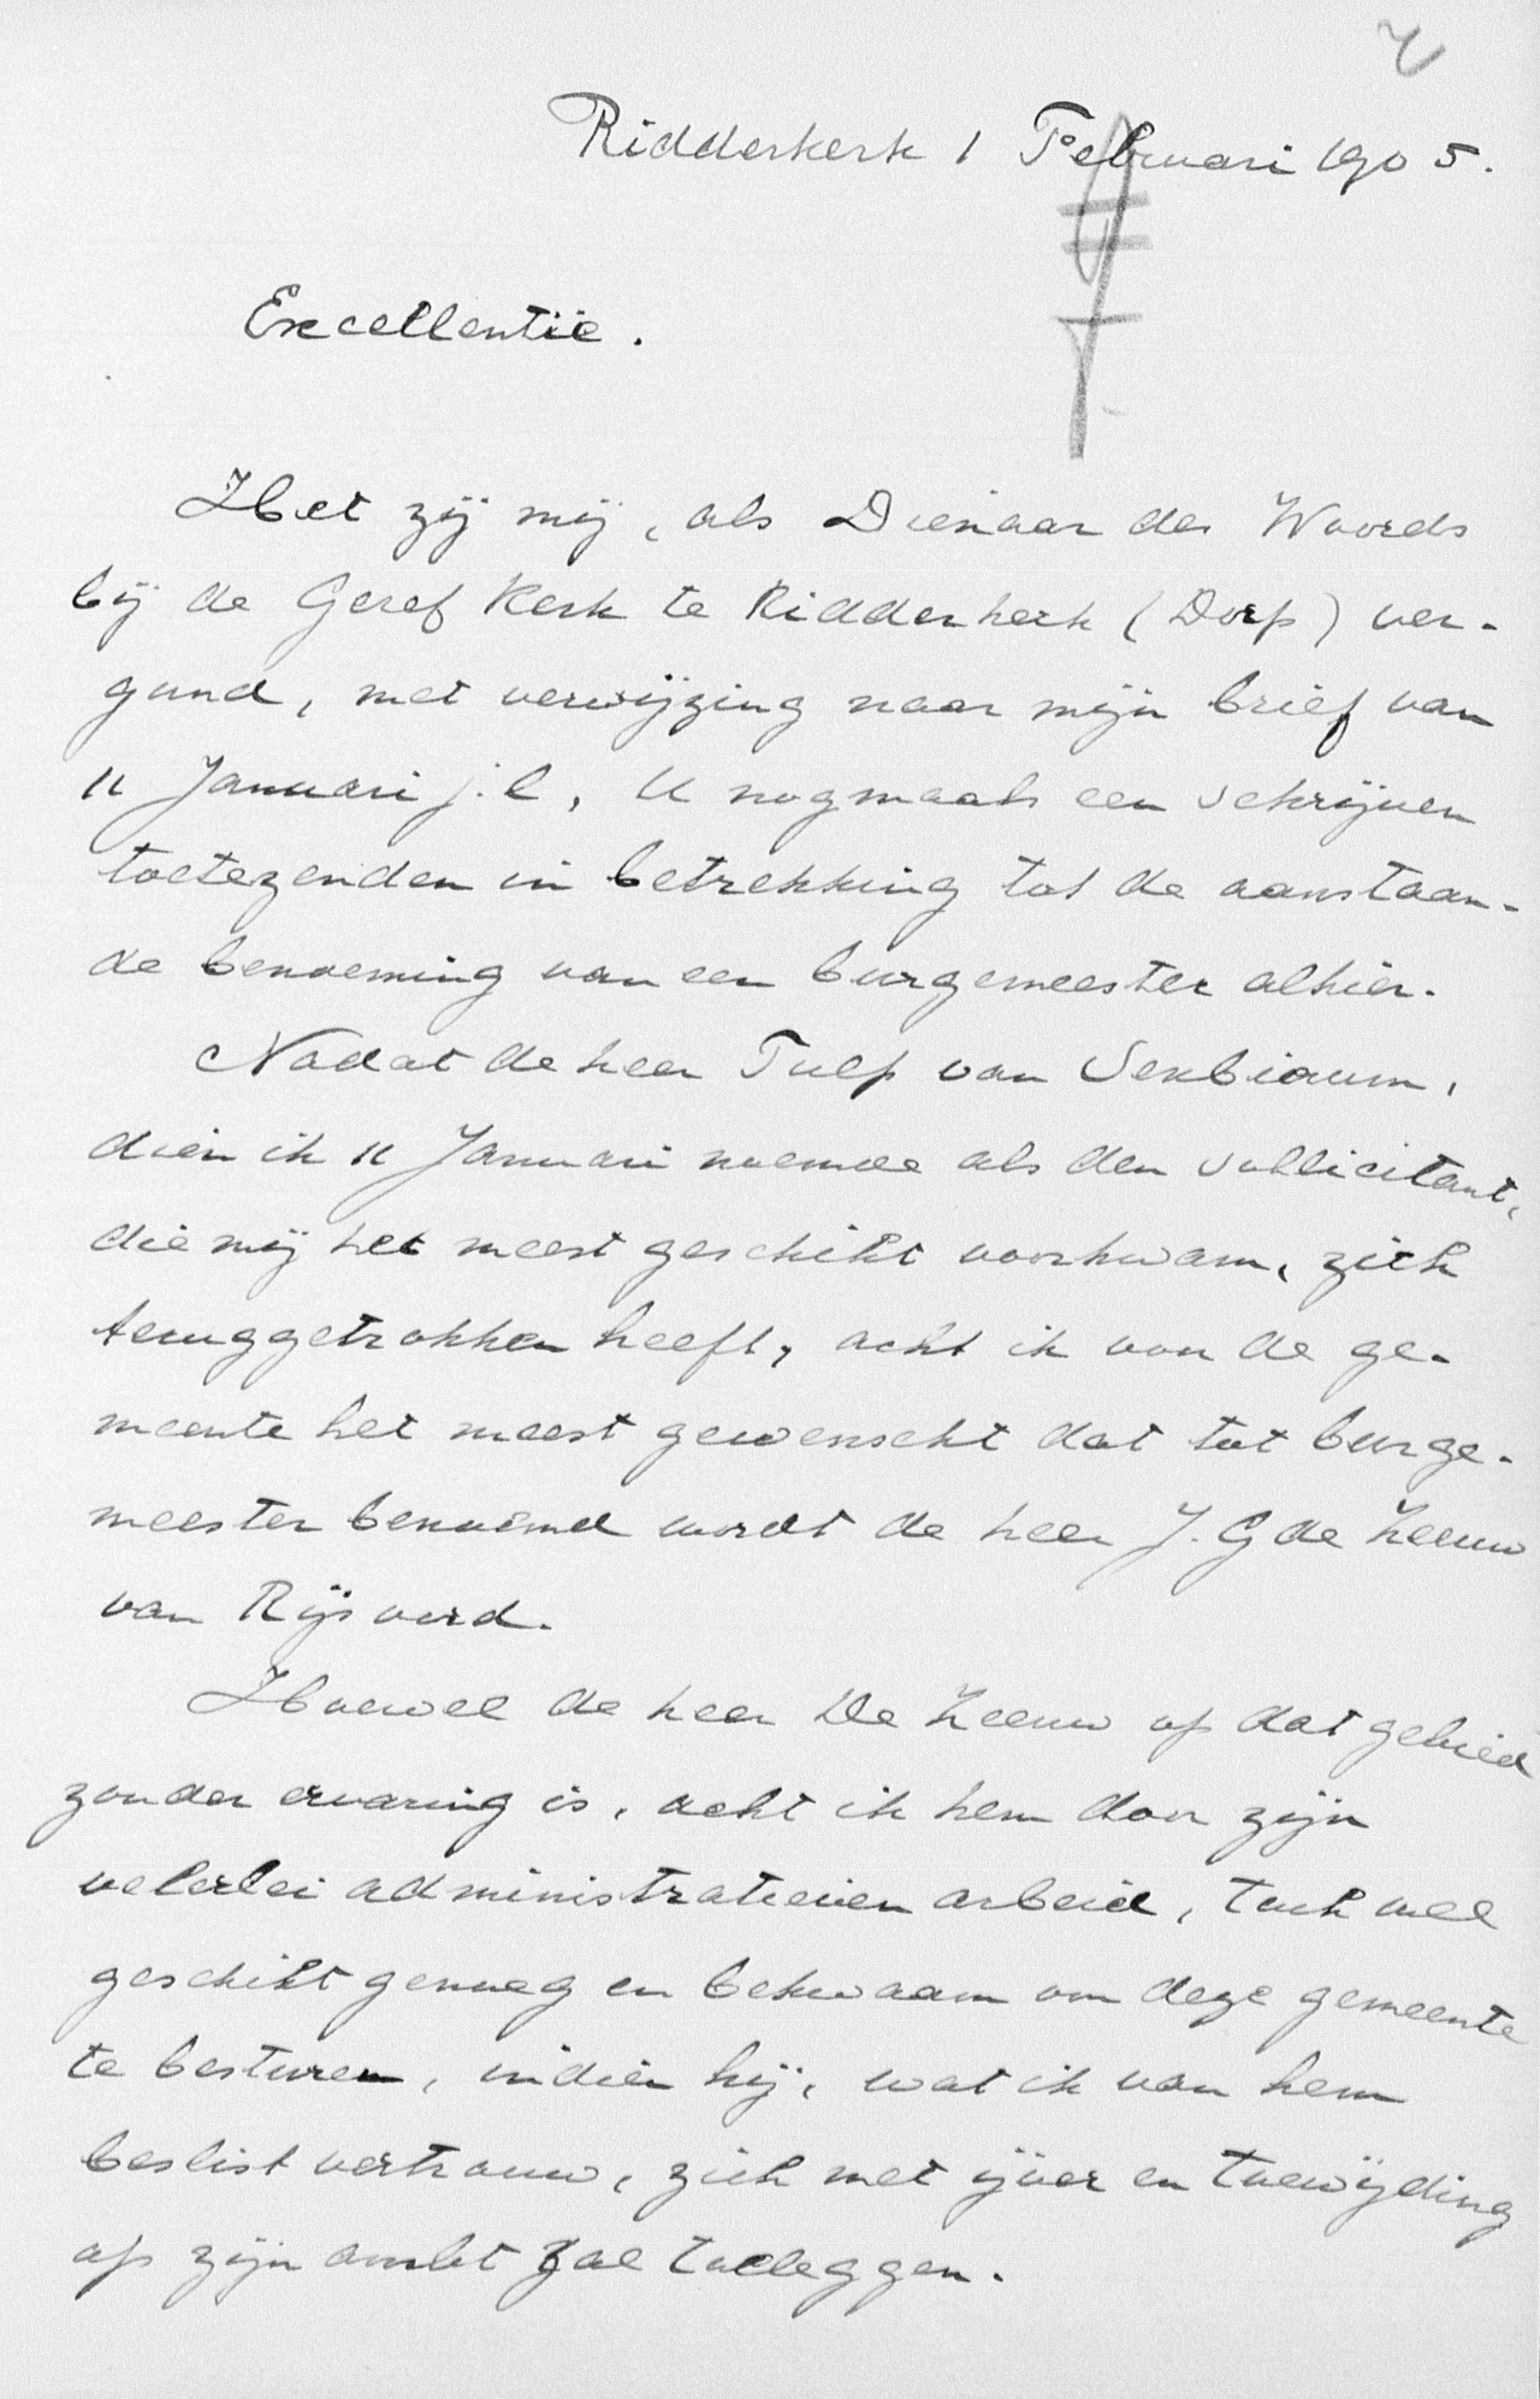 Ridderkerk 1 Februari 1905.
Excellentie.
Het zij mij, als Dienaar des Woords
bij de Geref Kerk te Ridderkerk (Dorp) ver-
gund, met verwijzing naar mijn brief van
11 Januari j.l, U nogmaals een schrijven
toetezenden in betrekking tot de aanstaan-
de benoeming van een burgemeester alhier.
Nadat de heer Tulp van Sexbierum,
dien ik 11 Januari noemde als den sollicitant,
die mij het meest geschikt voorkwam, zich
teruggetrokken heeft, acht ik voor de ge-
meente het meest gewenscht dat tot burge-
meester benoemd wordt de heer J. G de Zeeuw
van Rijsoord.
Hoewel de heer De Zeeuw op dat gebied
zonder ervaring is, acht ik hem door zijn
velerlei administratieven arbeid, toch wel
geschikt genoeg en bekwaam om deze gemeente
te besturen, indien hij, wat ik van hem
beslist vertrouw, zich met ijver en toewijding
op zijn ambt zal toeleggen.